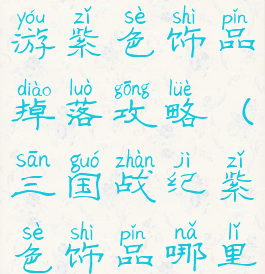 yóu zǐ sè shì pǐn
游紫色饰品
diào luò gōng lüè
掉落攻略（
sān guó zhàn jì zǐ
三国战纪紫
sè shì pǐn nǎ lǐ
色饰品哪里